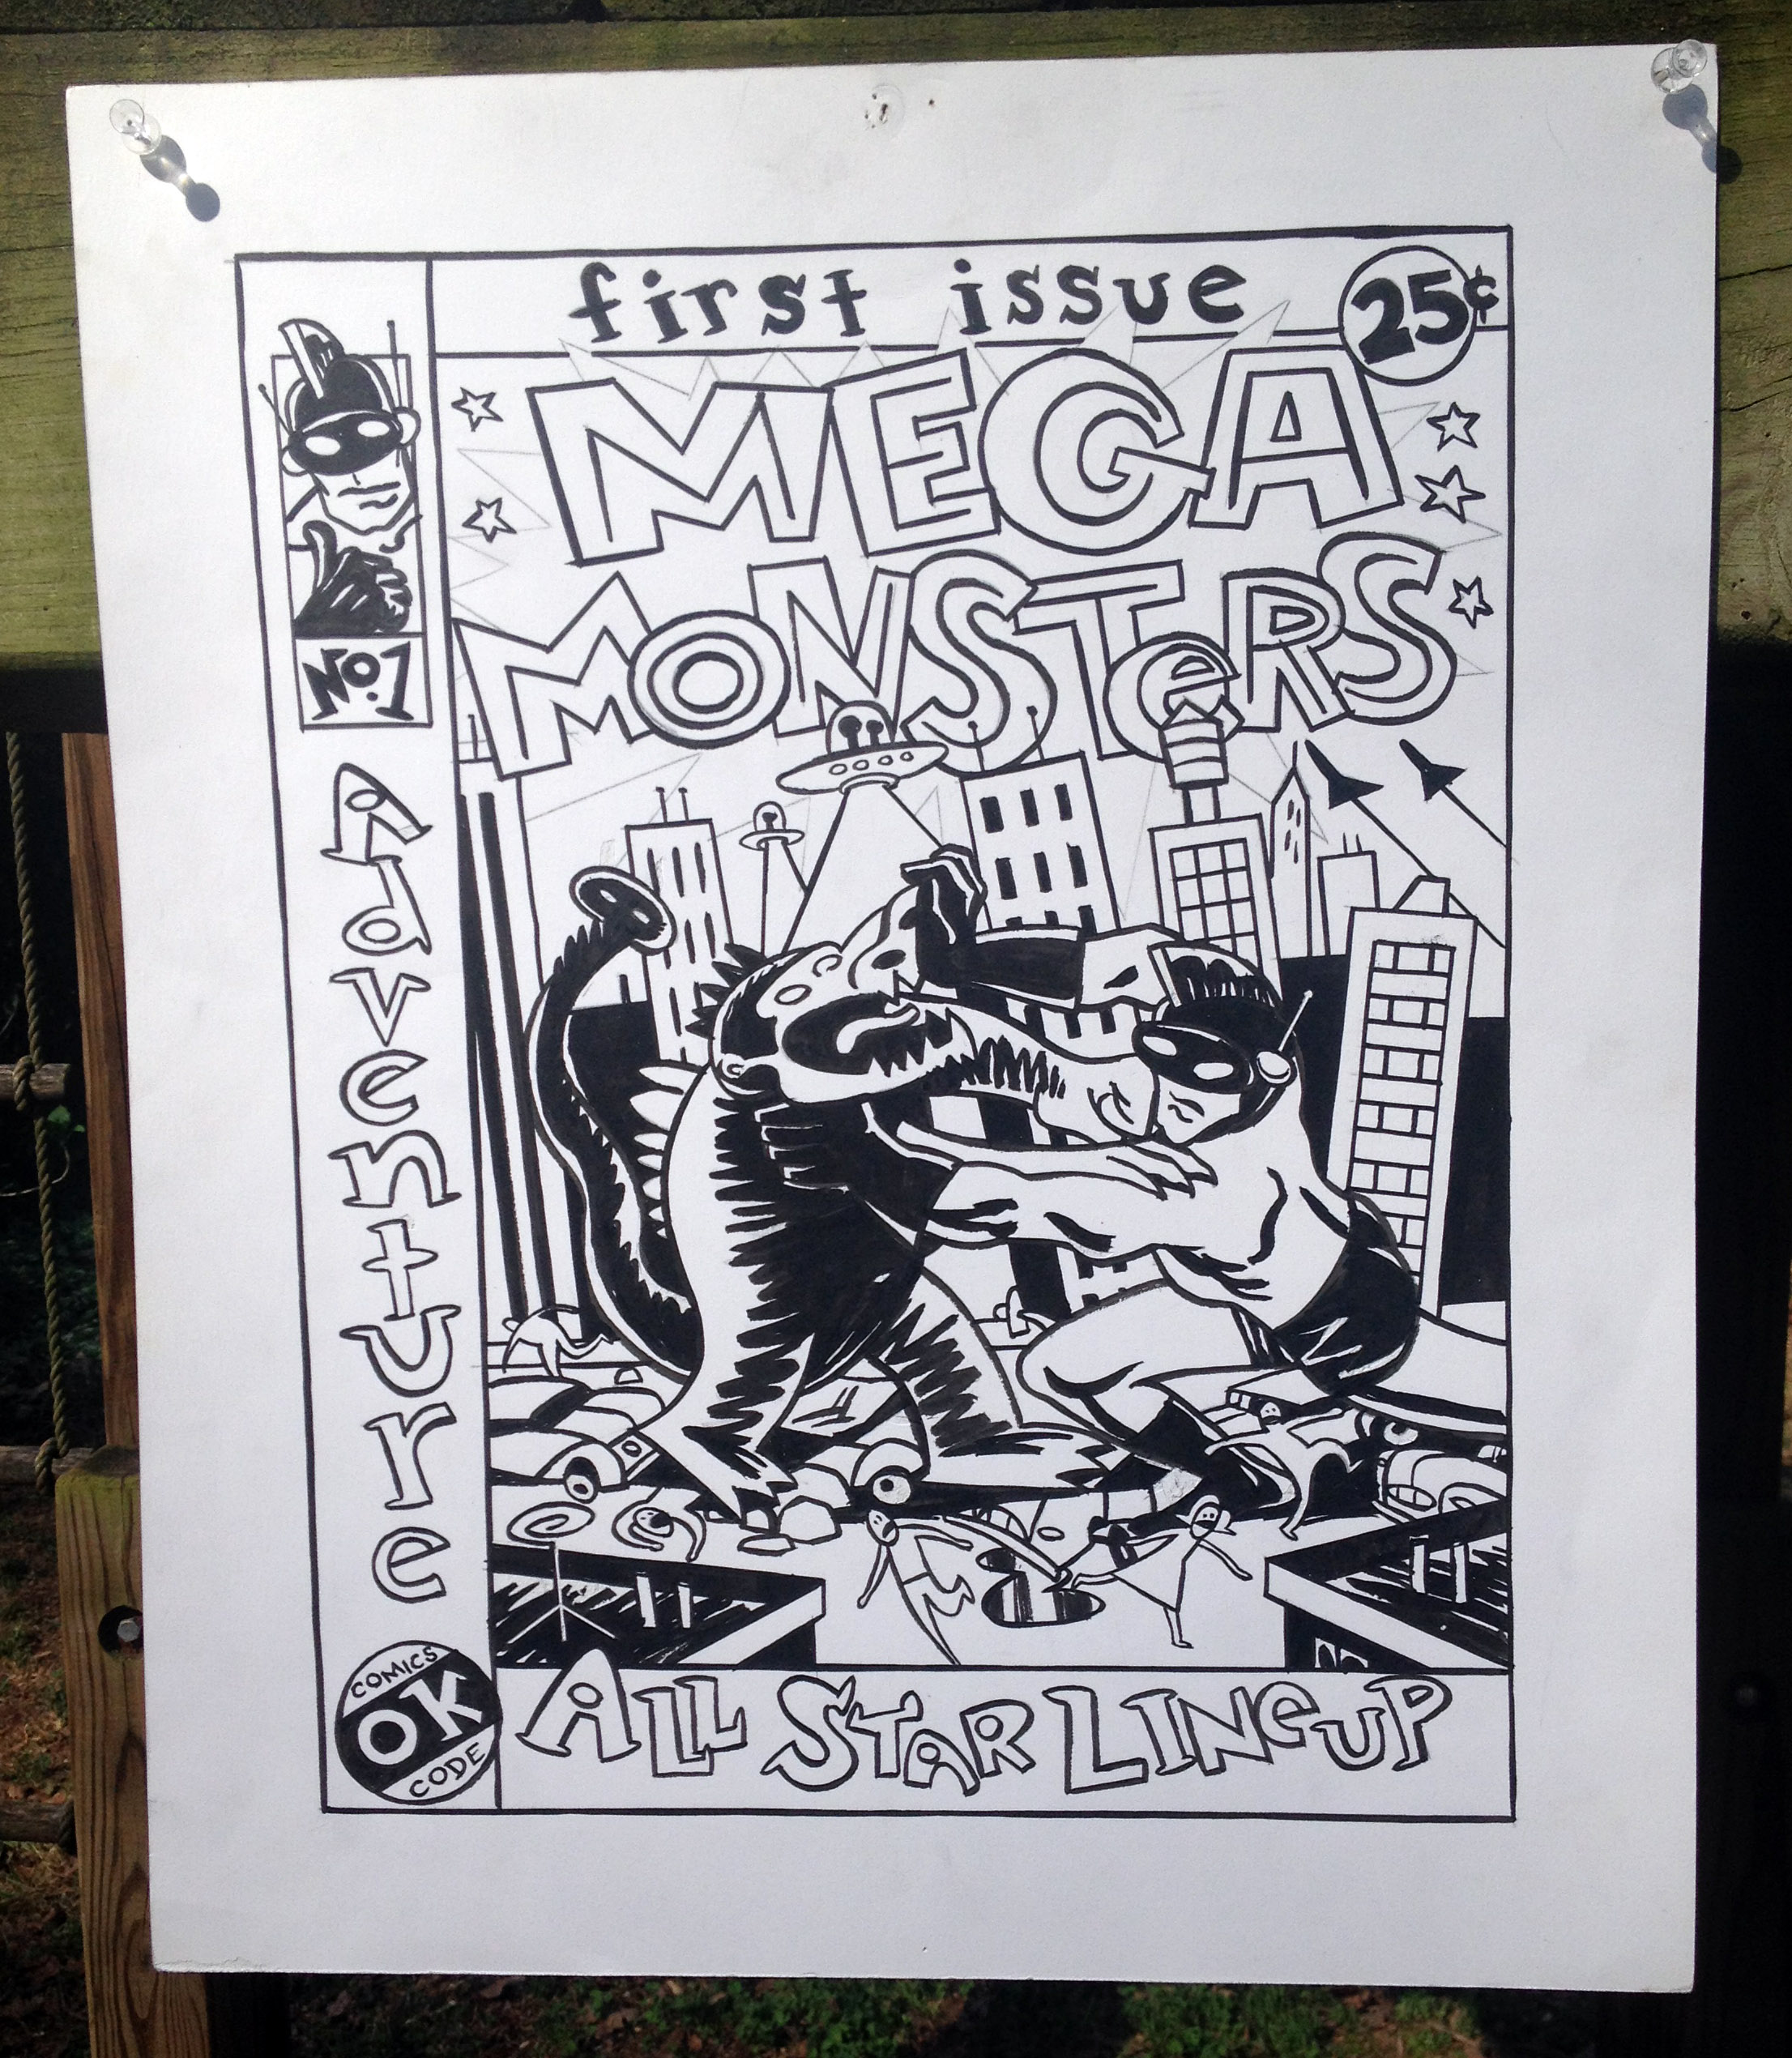 first issue
25¢
MEGA
MONSTeRS
No.1
Adventure
COMICS
OK
CODE
ALL STAR LINeUP